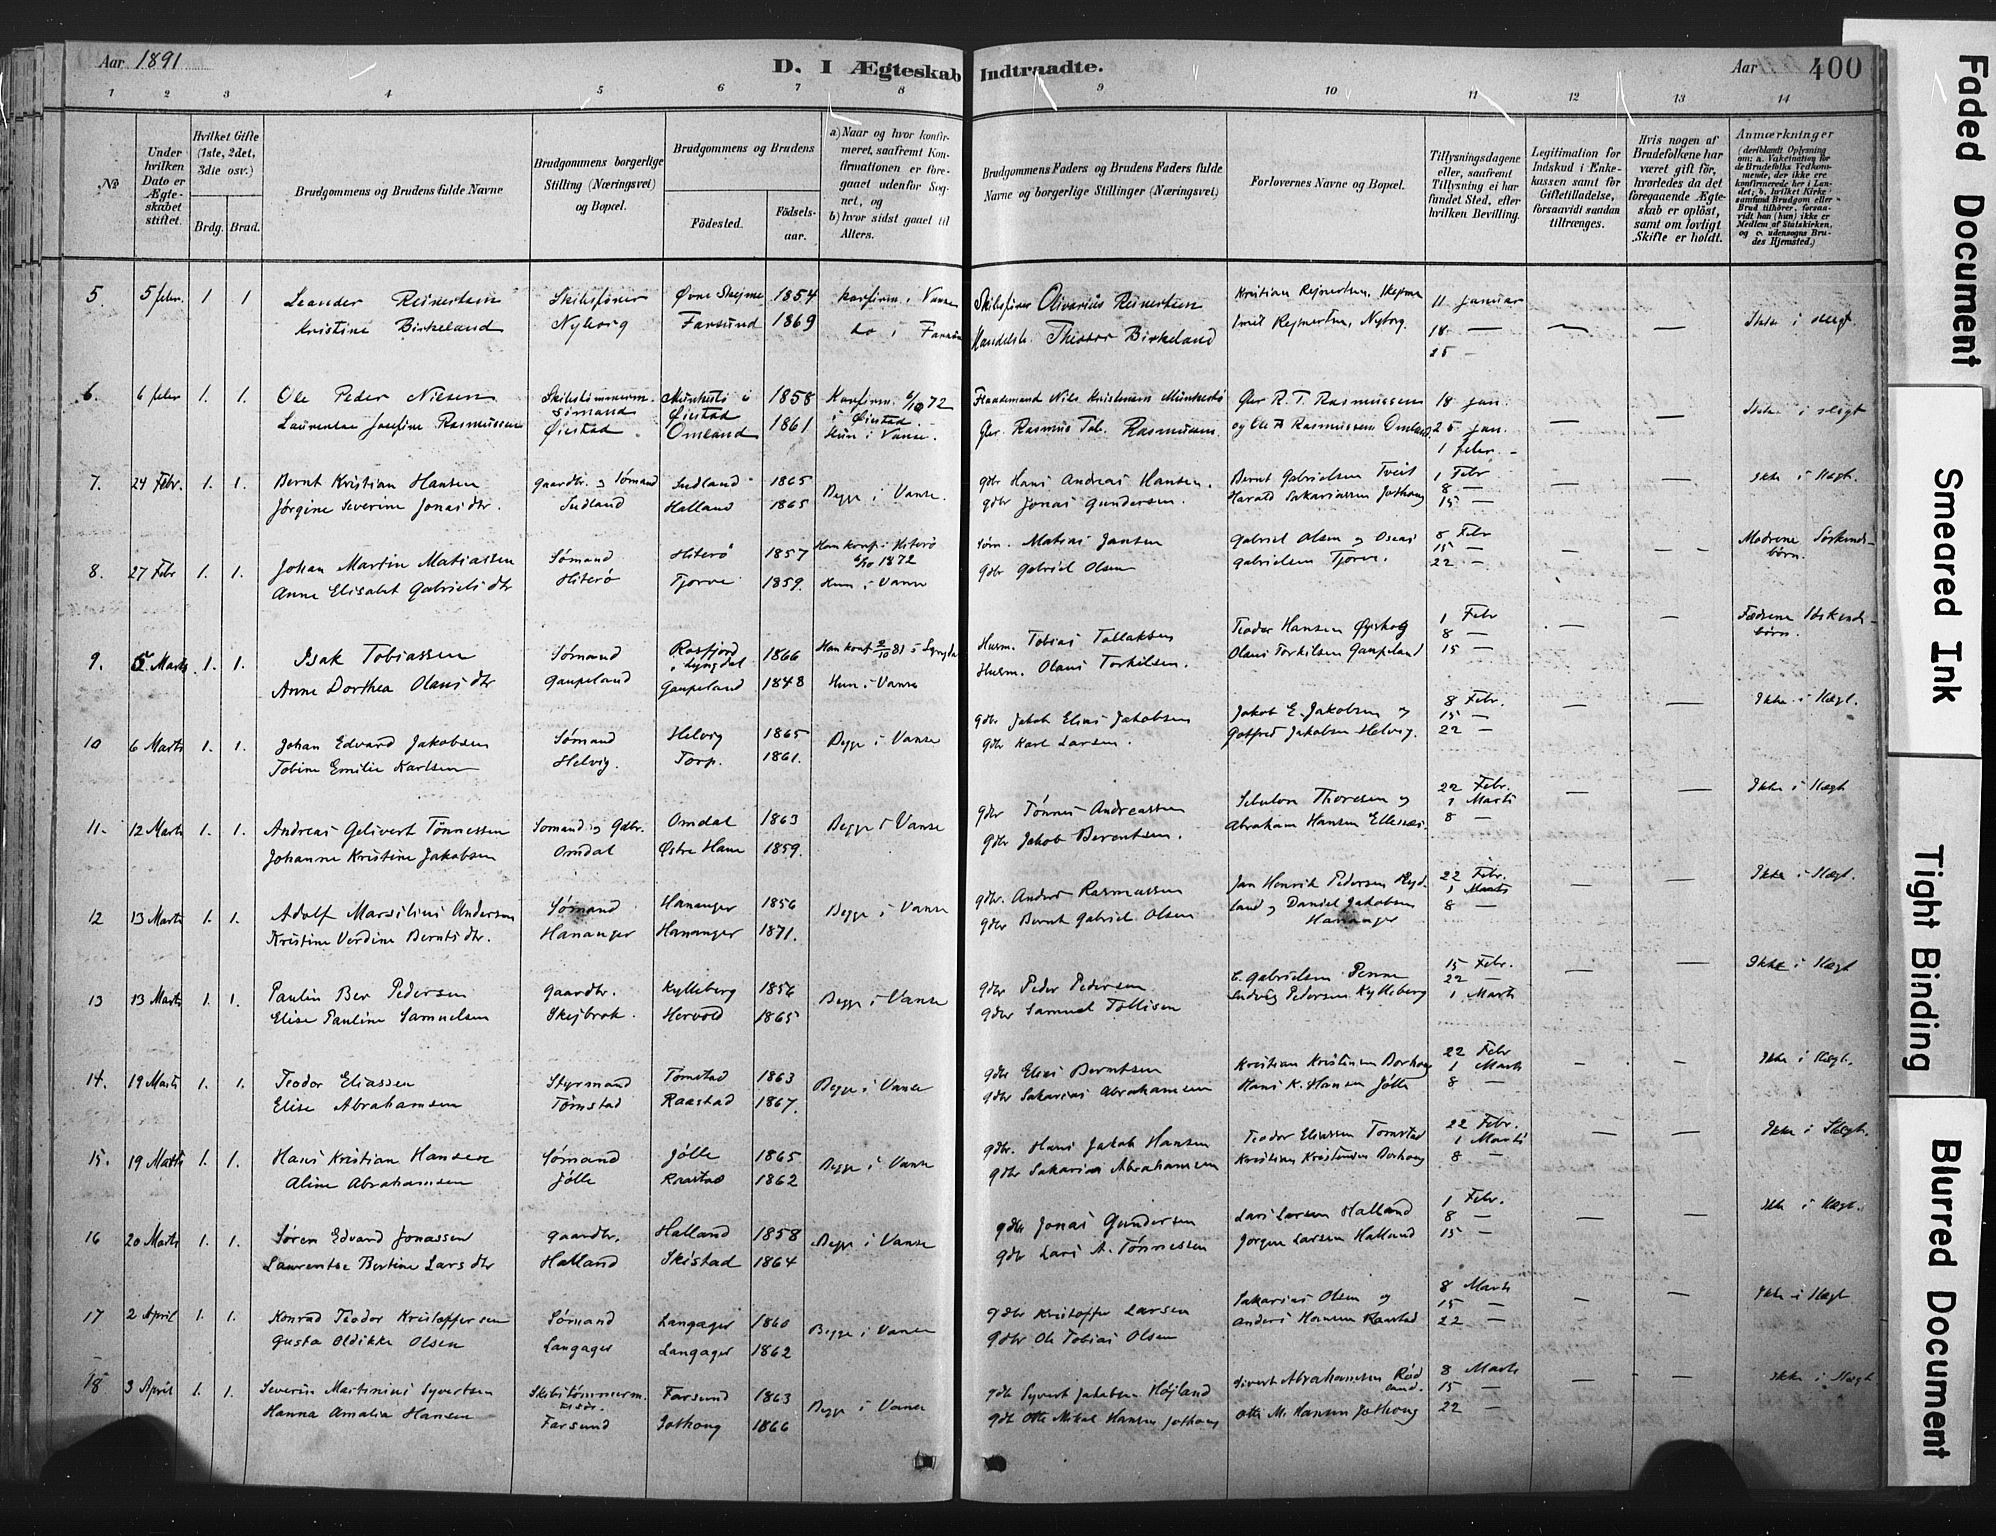 Aar 1891
D. I Ægteskab Indtraadte.
Aar 400
1 2 3 4 5 6 7 8 9 10 11 12 13 14
No
Under hvilken Dato er Ægteskabet stiftet.
Hvilket Gifte (1ste, 2det, 3die osv.)
Brdg. Brud.
Brudgommens og Brudens fulde Navne
Brudgommens borgerlige Stilling (Næringsvei) og Bopæl.
Brudgommens og Brudens
Fødested. Fødselsaar.
a) Naar og hvor konfirmeret, saafremt Konfirmationen er foregaaet udenfor Sognet, og
b) hvor sidst gaaet til Alters.
Brudgommens Faders og Brudens Faders fulde Navne og borgerlige Stillinger (Næringsvei)
Forlovernes Navne og Bopæl.
Tillysningsdagene eller, saafremt Tillysning ei har fundet Sted, efter hvilken Bevilling.
Legitimation for Indskud i Enkekassen samt for Giftetilladelse, forsaavidt saadan tiltrænges.
Hvis nogen af Brudefolkene har været gift før, hvorledes da det foregaaende Ægteskab er opløst, samt om lovligt Skifte er holdt.
Anmærkninger
(deriblandt Oplysning om: a. Vakcination for de Brudefolks Vedkommende, der ikke ere konfirmerede her i Landet; b. hvilket Kirkesamfund Brudgom eller Brud tilhører, forsaavidt han (hun) ikke er Medlem af Statskirken, og c. udensogns Brudes Hjemsted.)
5. 5 febr. 1 1 Leander Reinertsen 1854 konfirm. i Vanse Olivarius Reinertsen 11 Januar Ikke i slegt.
Kristine Birkeland Nyborg Farsund 1869 do i Farsund Theodor Birkeland 18 —
25 -
6. 6 febr 1. 1. Ole Peder Nielsen Skibstømmerm. 1858 Konfirm. 6/10 72 Gbr R. T. Rasmussen 18 jan. Ikke i slegt
Sømand Øiestad i Øiestad.
Laurentse Josefine Rasmussen Øiestad Omland 1861 Hun i Vanse. Gbr. Rasmus Tob. Rasmussen. og Ole Rasmussen Omland 25 jan.
1 febr. -
7. 24 Febr. 1. 1. Bernt Kristian Hansen gaardbr. og Sømand Sudland 1865 Begge i Vanse. gdbr Hans Andreas Hansen. Bernt Gabrielsen Tveit 1 Febr Ikke i Slegt.
Jørgine Severine Jonasdtr. Sudland Halland 1865 gdbr Jonas Gundersen. Harald Sakariassen Jothong 8 —
15 —
8. 27 Febr 1. 1. Johan Martin Matiassen Sømand Hiterø 1857 Han konf. i Hiterø 6/10 1872 Matias Jansen Gabriel Olsen og 8 Febr Mødrene Søskendebørn.
Anne Elisabet Gabrielsdtr Hiterø Tjørve 1859. Hun i Vanse gdbr Gabriel Olsen Gabrielsen Tjørve. 15 —
22 —
9. 5 Marts 1. 1. Isak Tobiassen Sømand Rosfjord i Lyngdal 1866 Han konf 2/10 81 i Lyngdal Husm. Tobias Tollaksen Teodor Hansen 1 Febr Fædrene Søskendebørn.
Anne Dorthea Olausdtr Gaupeland Gaupeland 1848 Hun i Vanse Husm. Olaus Torkilsen. Olaus Torkilsen Gaupeland 8 —
15 —
10 6 Marts 1. 1. Johan Edvard Jakobsen Sømand Helvig 1865 Begge i Vanse gdbr Jakob Elias Jakobsen Jakob E. Jakobsen og 8 Febr. Ikke i Slegt.
Tobine Emilie Karlsen Helvig. Torp. 1861. gdbr Karl Larsen. Gotfred Jakobsen Helvig. 15 —
22 —
11. 12 Marts 1. 1. Andreas Gelivert Tønnessen Sømand og Gdbr. Omdal 1863 Begge i Vanse gdbr Tønnes Andreassen Thoresen og 22 Febr. Ikke i Slegt
Johanne Kristine Jakobsen Omdal Østre Haue 1859. gdbr Jakob Berentsen. Abraham Hansen 1 Marts
8 —
12 13 Marts 1. 1. Adolf Marsilius Andersen Sømand Hananger 1856 Begge i Vanse gdbr. Anders Rasmussen Jan Henrik Pedersen 22 Febr. Ikke i Slegt.
Kristine Verdine Berntsdtr. Hananger Hananger 1871. gdbr Bernt Gabriel Olsen og Daniel Jakobsen Hananger 1 Marts
8 —
13 13 Marts 1. 1. Paulin Ber Pedersen gaardbr. Kylleberg 1856 Begge i Vanse gdbr Peder Pedersen Gabrielsen Penne 15 Febr. Ikke i Slegt
Elise Pauline Samuelsen Skejbrok. Hervold 1865 gdbr Samuel Tollisen Ludvig Pedersen Kylleberg 22
1 Marts
14. 19 Marts 1. 1. Teodor Eliassen Styrmand Tomstad 1863 Begge i Vanse gdbr Elias Berntsen Kristian Kristensen Borhaug 22 Febr Ikke i Slegt.
Elise Abrahamsen Tomstad Raastad 1867. gdbr Sakarias Abrahamsen Hans K. Hansen Jølle 1 Marts
8 —
15. 19 Marts 1. 1. Hans Kristian Hansen Sømand Jølle 1865 Begge i Vanse gdbr. Hans Jakob Hansen Teodor Eliassen Tomstad 22 Febr. Ikke i Slegt.
Aline Abrahamsen Jølle Raastad 1862 gdbr Sakarias Abrahamsen Kristian Kristensen Borhaug 1 Marts
8 —
16 20 Marts 1. 1. Søren Edvard Jonassen gaardbr. Halland 1858 Begge i Vanse gdbr Jonas Gundersen Lars Larsen Halland 1 Febr. Ikke i Slegt.
Laurentse Bertine Larsdtr Halland Skistad 1864 gdbr Lars A. Tønnessen Jørgen Larsen Halland 8 —
15 —
17 2 April 1. 1. Konrad Teodor Kristoffersen Sømand Langager 1860 Begge i Vanse gdbr Kristoffer Larsen Sakarias Olsen og 8 Marts Ikke i Slegt
Gusta Oldikke Olsen Langager Langager 1862 gdbr Ole Tobias Olsen Anders Hansen Raastad 15 —
22 —
18 3 April 1. 1. Severin Martinius Syvertsen Skibstømmerm. Farsund 1863 Begge i Vanse gdbr Syvert Jakobsen Højland Sivert Abrahamsen Rødland. 8 Marts Ikke i Slegt
Hanna Amalia Hansen Farsund Jothong 1866 gdbr Otto Mikal Hansen Jothong Otto M. Hansen Jothong 15 —
22 —
Faded Document
Smeared Ink
Tight Binding
Blurred Document